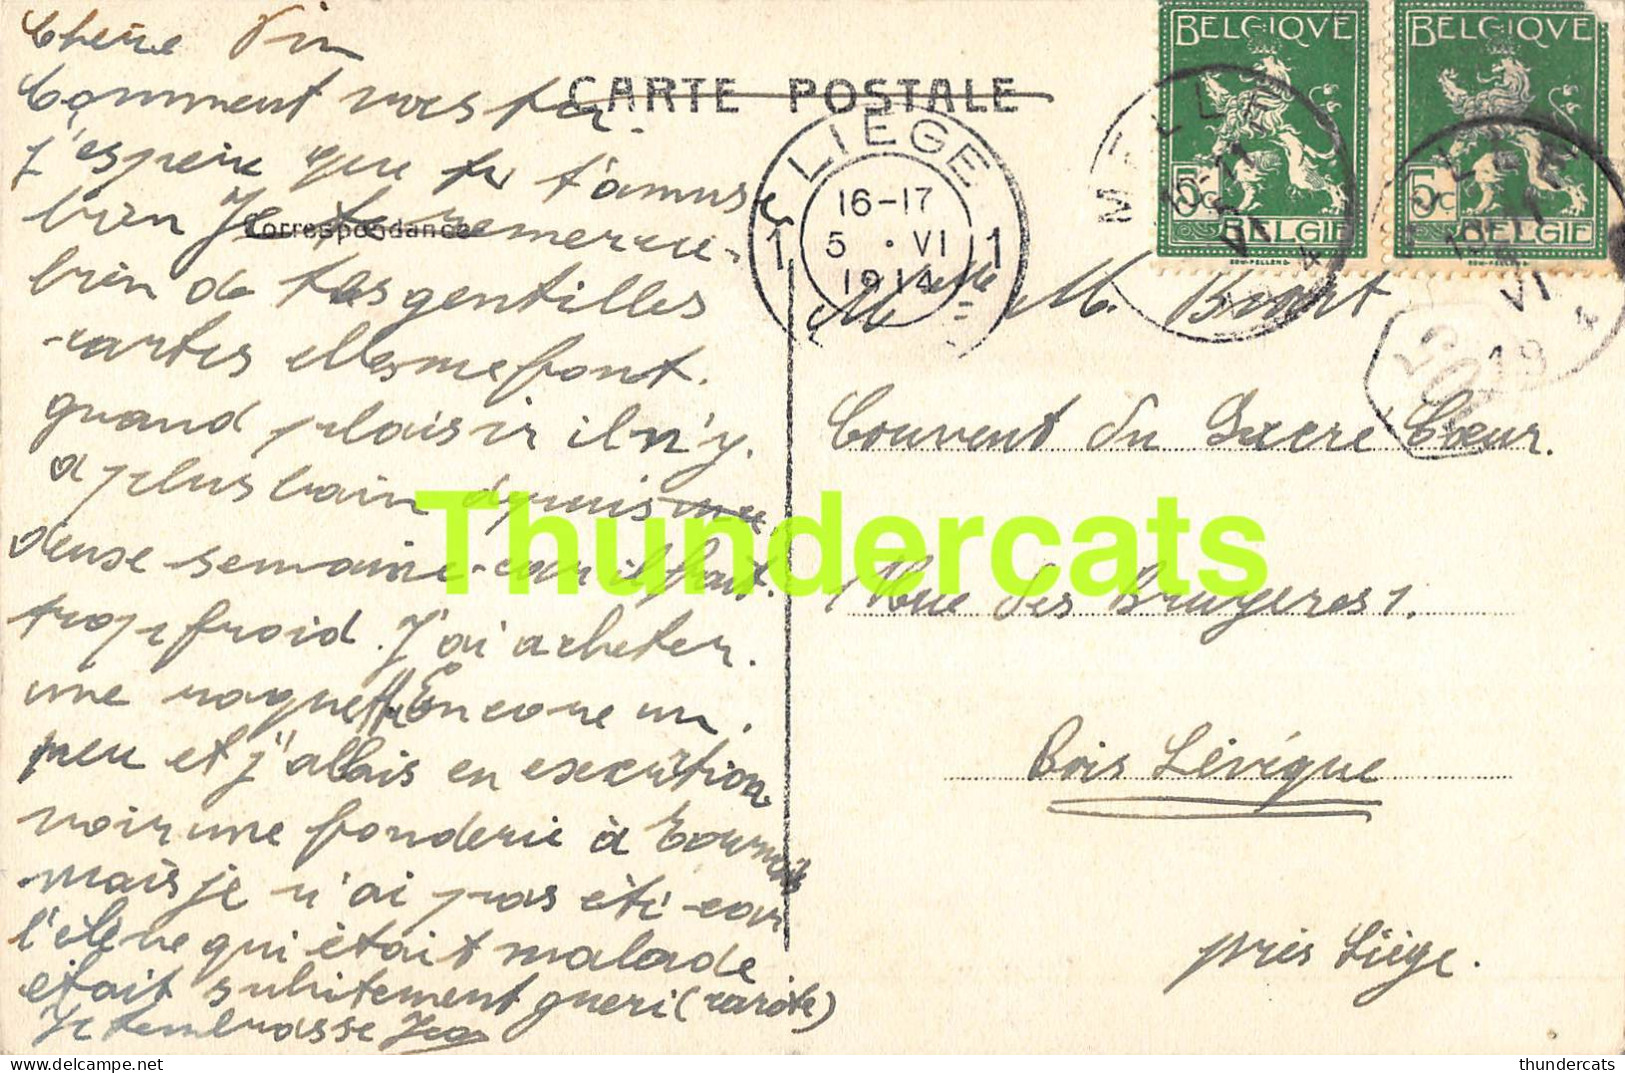 CARTE POSTALE
Correspondance
Chère
Comment vas tu
J'espère que tu t'amuse
bien Je te remercie
bien de tes gentilles
cartes elles me font.
grand plaisir il n'y.
a plus bain depuis
deuse semaine car il fait.
trop froid. J'ai acheter.
une raquette Encore un.
peu et j'allais en
voir une fonderie à Tournai
mais je n'ai pas été car
l'élève qui était malade
était subitement gueri (carotte)
Je t'embrasse
BELGIQVE
5c 5c
BELGIE
BELGIQVE
5c
BELGIE
MELLE
LIEGE
16-17
5 · VI
1914
1 1
M. Binet
Couvent du Sacré Cœur.
Rue des Bruyeres 1.
Bois Lévêque
près Liège.
Thundercats
thundercats